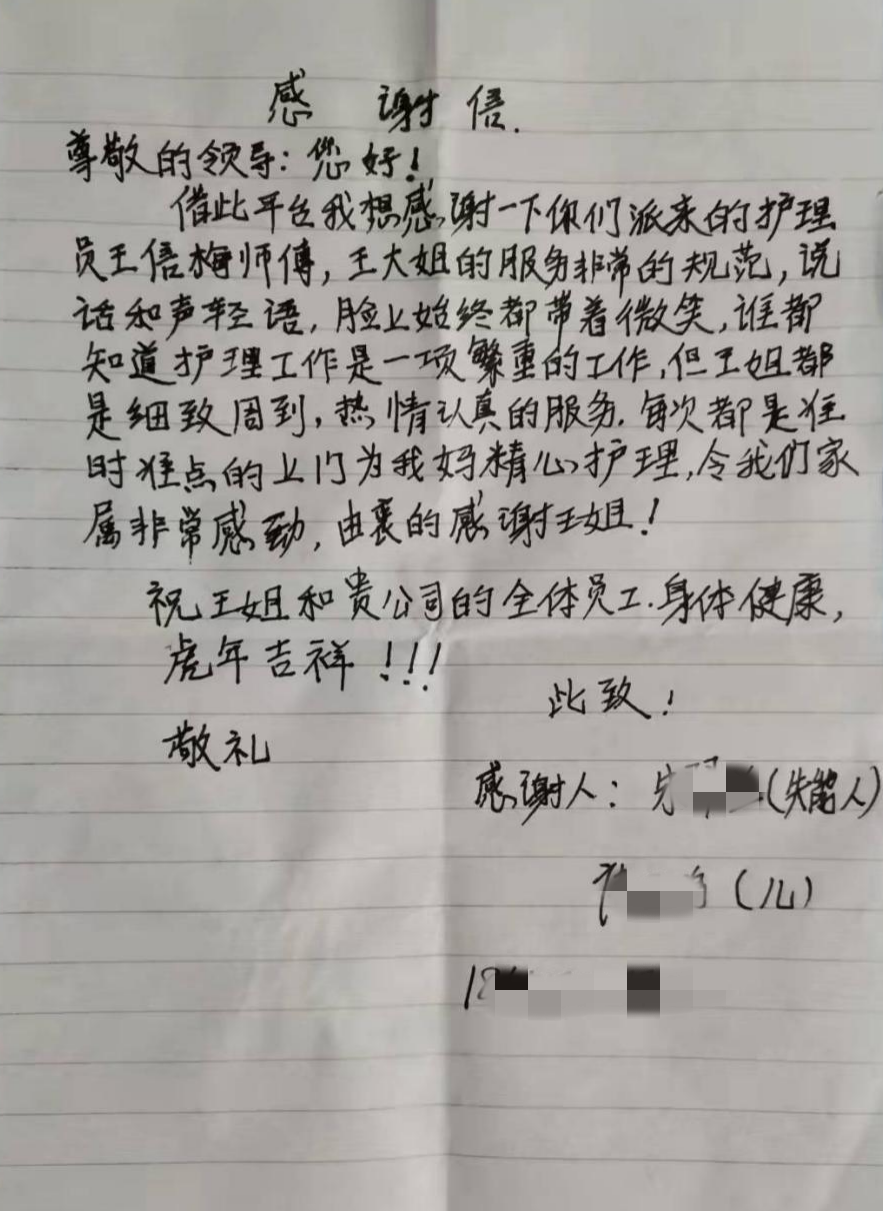 感谢信.
尊敬的领导：您好！
借此平台我想感谢一下你们派来的护理
员王信梅师傅，王大姐的服务非常的规范，说
话和声轻语，脸上始终都带着微笑，谁都
知道护理工作是一项繁重的工作，但王姐都
是细致周到，热情认真的服务.每次都是准
时准点的上门为我妈精心护理，令我们家
属非常感动，由衷的感谢王姐！
祝王姐和贵公司的全体员工.身体健康，
虎年吉祥！！！
此致！
敬礼
感谢人：（失能人）
（儿）